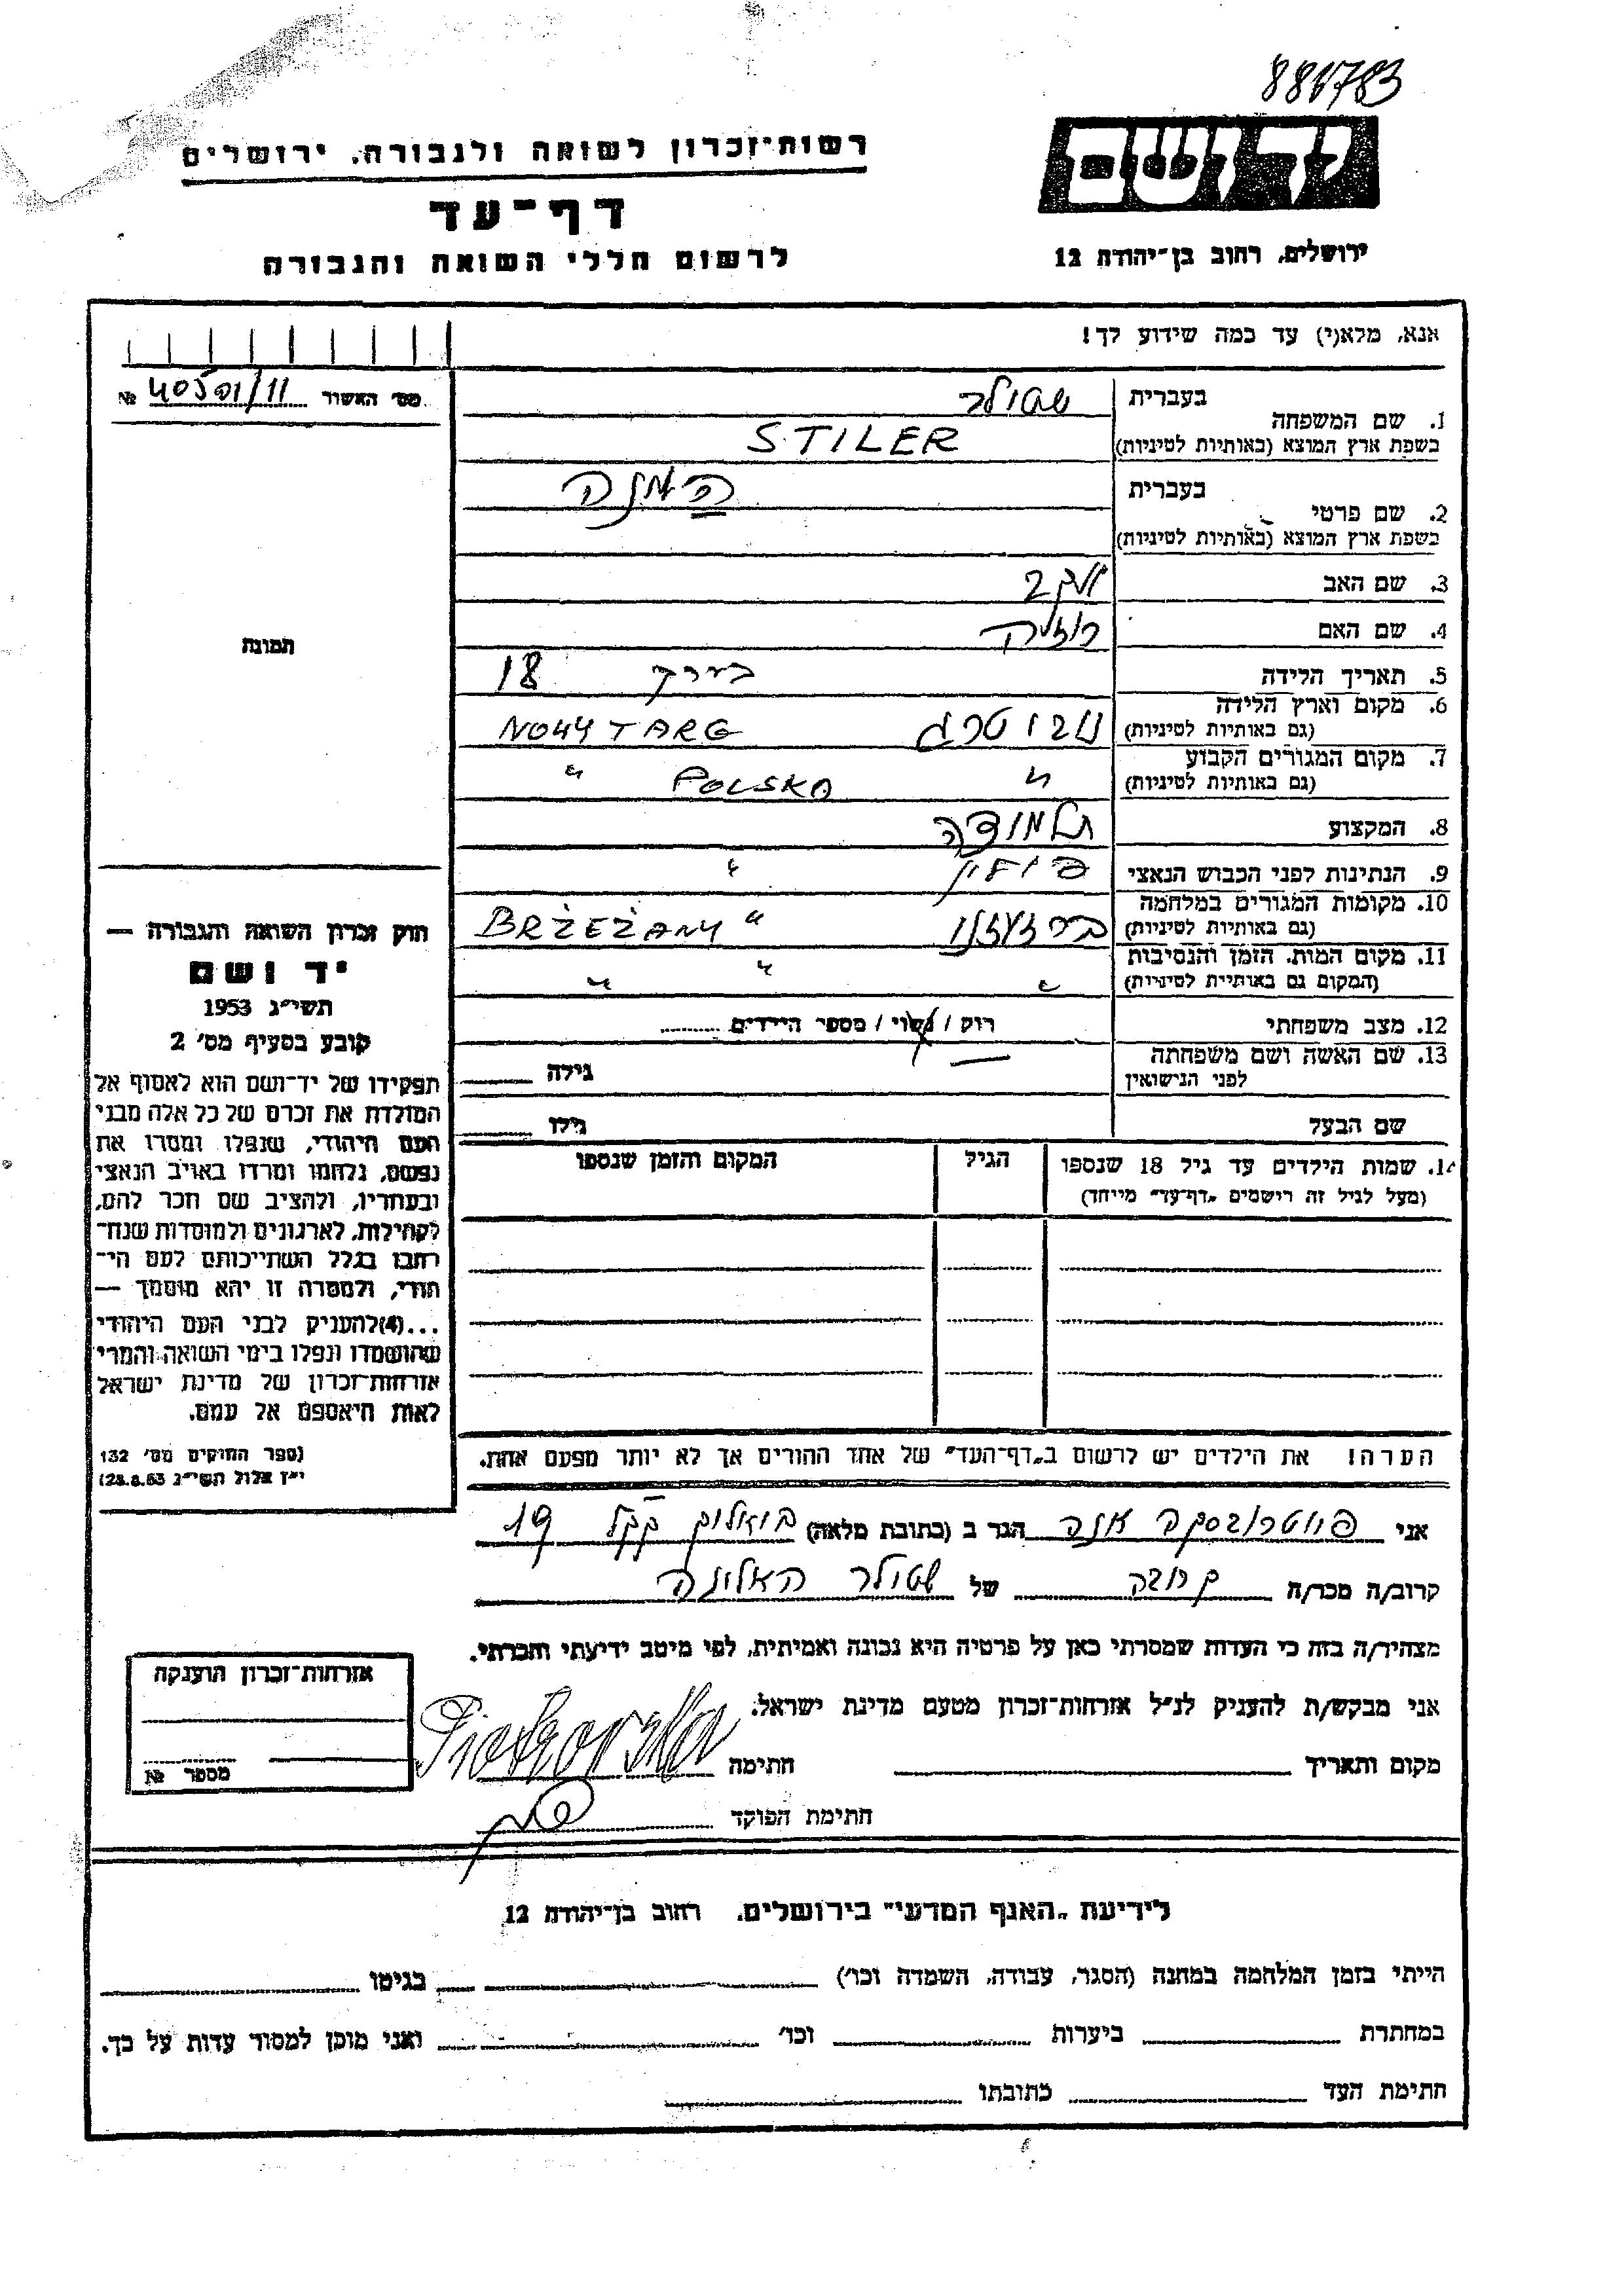 881783
רשות־זכרון לשואה ולגבורה, ירושלים
יד ושם
דף־עד
לרשום חללי השואה והגבורה
ירושלים, רחוב בן־יהודה 12
אנא, מלא(י) עד כמה שידוע לך!
מס׳ האשור 40501/11 №
1. שם המשפחה
בעברית שטולר
בשפת ארץ המוצא (באותיות לטיניות) STILER
2. שם פרטי
בעברית
בשפת ארץ המוצא (באותיות לטיניות)
3. שם האב יעקב
4. שם האם רוזליה
5. תאריך הלידה בערך 18
6. מקום וארץ הלידה
(גם באותיות לטיניות) נובו טרג NOWY TARG
7. מקום המגורים הקבוע
(גם באותיות לטיניות) " POLSKA "
8. המקצוע תלמודה
9. הנתינות לפני הכבוש הנאצי פולין "
10. מקומות המגורים במלחמה
(גם באותיות לטיניות) ברזעזנו " BRŻEŻANY
11. מקום המות, הזמן והנסיבות
(המקום גם באותיות לטיניות) " " "
12. מצב משפחתי רוק / נשוי / מספר הילדים
13. שם האשה ושם משפחתה
לפני הנישואין — גילה
שם הבעל גילו
14. שמות הילדים עד גיל 18 שנספו הגיל המקום והזמן שנספו
(מעל לגיל זה רישמים „דף־עד" מיוחד)
תמונה
חוק זכרון השואה והגבורה —
יד ושם
תשי״ג 1953
קובע בסעיף מס׳ 2
תפקידו של יד־ושם הוא לאסוף אל
המולדת את זכרם של כל אלה מבני
העם היהודי, שנפלו ומסרו את
נפשם, נלחמו ומרדו באויב הנאצי
ובעוזריו, ולהציב שם וזכר להם,
לקהילות, לארגונים ולמוסדות שנח־
רבו בגלל השתייכותם לעם הי־
הודי, ולמטרה זו יהא מוסמך —
...(4)להעניק לבני העם היהודי
שהושמדו ונפלו בימי השואה והמרי
אזרחות־זכרון של מדינת ישראל
לאות היאספם אל עמם.
(ספר החוקים מס׳ 132
י״ז אלול תשי״ג 28.8.53)
הערה! את הילדים יש לרשום ב„דף־העד" של אחד ההורים אך לא יותר מפעם אחת.
אני פיוטרובסקה אנה הגר ב (כתובת מלאה) 19
קרוב/ה מכר/ה קרובה של שטולר האלינה
מצהיר/ה בזה כי העדות שמסרתי כאן על פרטיה היא נכונה ואמיתית, לפי מיטב ידיעתי והכרתי.
אני מבקש/ת להעניק לנ״ל אזרחות־זכרון מטעם מדינת ישראל.
מקום ותאריך חתימה Piotrovska
חתימת הפוקד
אזרחות־זכרון הוענקה
מספר №
לידיעת „האגף המדעי" בירושלים, רחוב בן־יהודה 12
הייתי בזמן המלחמה במחנה (הסגר, עבודה, השמדה וכו׳) בגיטו
במחתרת ביערות וכו׳ ואני מוכן למסור עדות על כך.
חתימת העד כתובתו